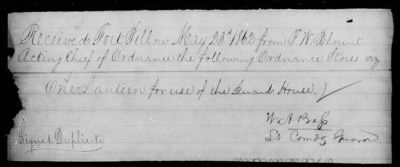 Received Fort Pillow May 23d 1862 from F. W. Blount
Acting Chief of Ordnance the following Ordnance Stores viz
One Canteen for use of the Guard House.
W. A.
Lt Comdg
Signed Duplicate